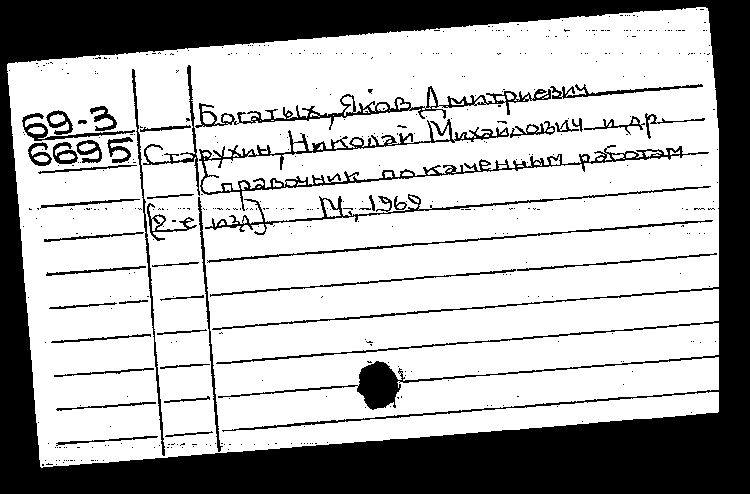 69-3 Богатых, Яков Дмитриевич
6695 Старухин, Николай Михайлович и др.
Справочник по каменным работам
[2-е изд]. М., 1969.